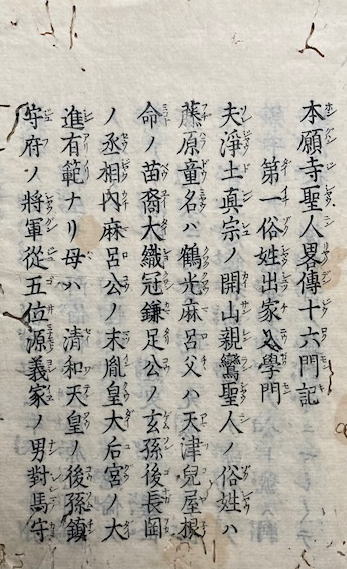 本願寺聖人畧傳十六門記
第一俗姓出家入學門
夫淨土真宗ノ開山親鸞聖人ノ俗姓ハ
藤原童名ハ鶴光麻呂父ハ天津兒屋根
命ノ苗裔大織冠鎌足公ノ玄孫後長岡
ノ丞相內麻呂公ノ末胤皇大后宮ノ大
進有範ナリ母ハ清和天皇ノ後孫鎮
守府ノ將軍從五位源義家ノ男對馬守